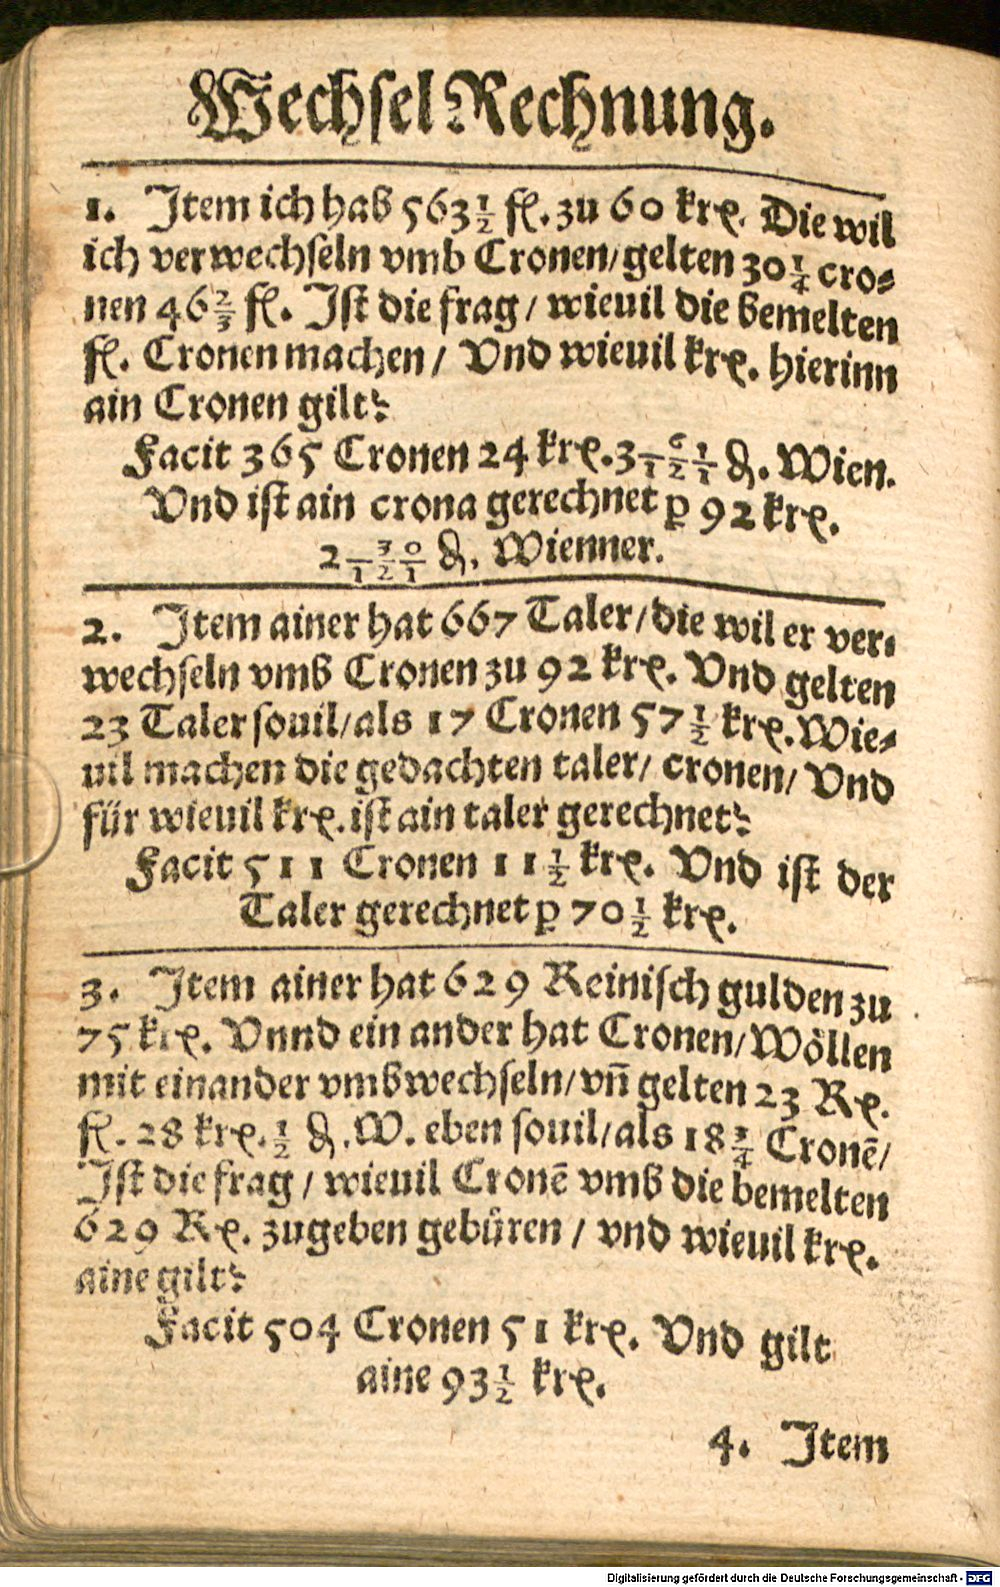 Wechsel Rechnung.
1. Item ich hab 563 1/2 fl. zu 60 krꝭ. Die wil
ich verwechseln vmb Cronen/gelten 30 1/4 cro⸗
nen 46 2/3 fl. Ist die frag/ wieuil die bemelten
fl. Cronen machen/ Vnd wieuil krꝭ. hierinn
ain Cronen gilt?
Facit 365 Cronen 24 krꝭ. 3 61/121 ₰. Wien.
Vnd ist ain crona gerechnet ꝑ 92 krꝭ.
2 30/121 ₰. Wienner.
2. Item ainer hat 667 Taler/die wil er ver⸗
wechseln vmb Cronen zu 92 krꝭ. Vnd gelten
23 Taler souil/als 17 Cronen 57 1/2 krꝭ. Wie⸗
uil machen die gedachten taler/ cronen/ Vnd
für wieuil krꝭ. ist ain taler gerechnet?
Facit 511 Cronen 11 1/2 krꝭ. Vnd ist der
Taler gerechnet ꝑ 70 1/2 krꝭ.
3. Item ainer hat 629 Reinisch gulden zu
75 krꝭ. Vnnd ein ander hat Cronen/Wöllen
mit einander vmbwechseln/vñ gelten 23 Rꝭ.
fl. 28 krꝭ. 1/2 ₰. W. eben souil/als 18 3/4 Cronē/
Ist die frag/ wieuil Cronē vmb die bemelten
629 Rꝭ. zugeben gebůren/ vnd wieuil krꝭ.
aine gilt?
Facit 504 Cronen 51 krꝭ. Vnd gilt
aine 93 1/2 krꝭ.
4. Item
Digitalisierung gefördert durch die Deutsche Forschungsgemeinschaft - DFG